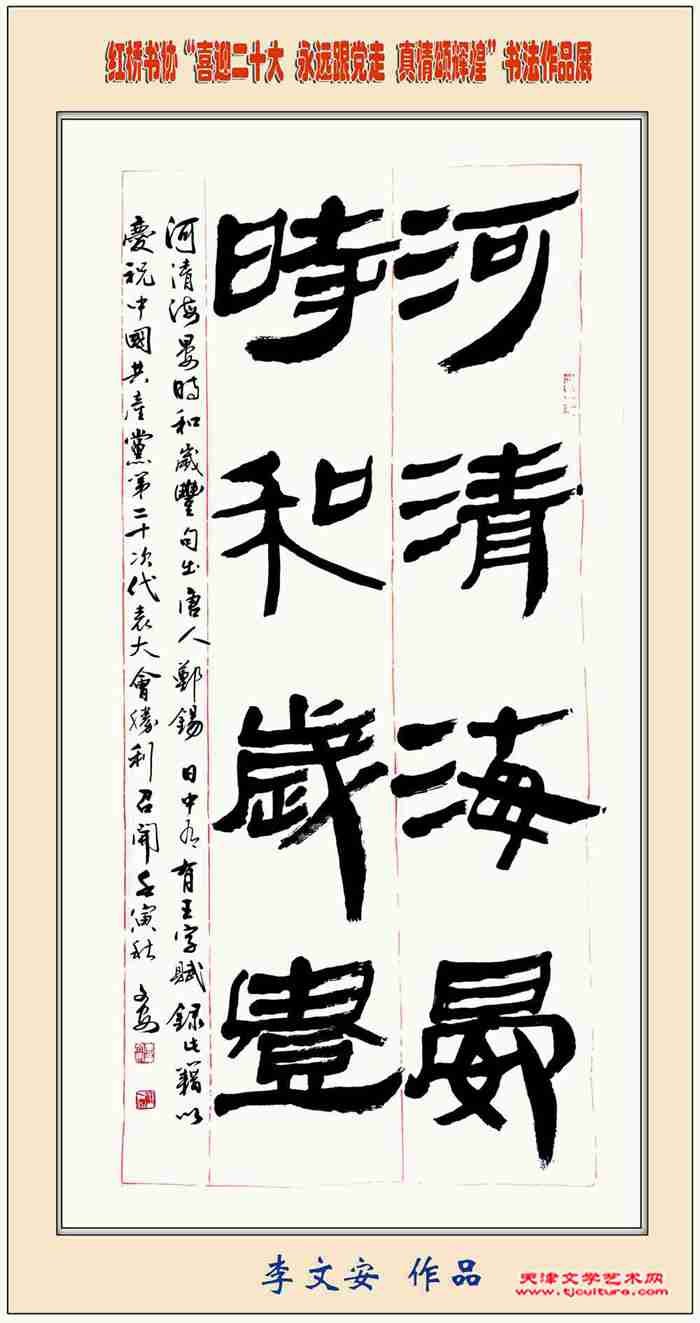 红桥书协“喜迎二十大 永远跟党走 真情颂辉煌”书法作品展
河清海晏
時和歲豐
河清海晏時和歲豐句出唐人鄭錫日中有王字賦録此藉以
慶祝中國共產黨第二十次代表大會勝利召開壬寅秋文安
李文安 作品
天津文学艺术网
www.tjculture.com